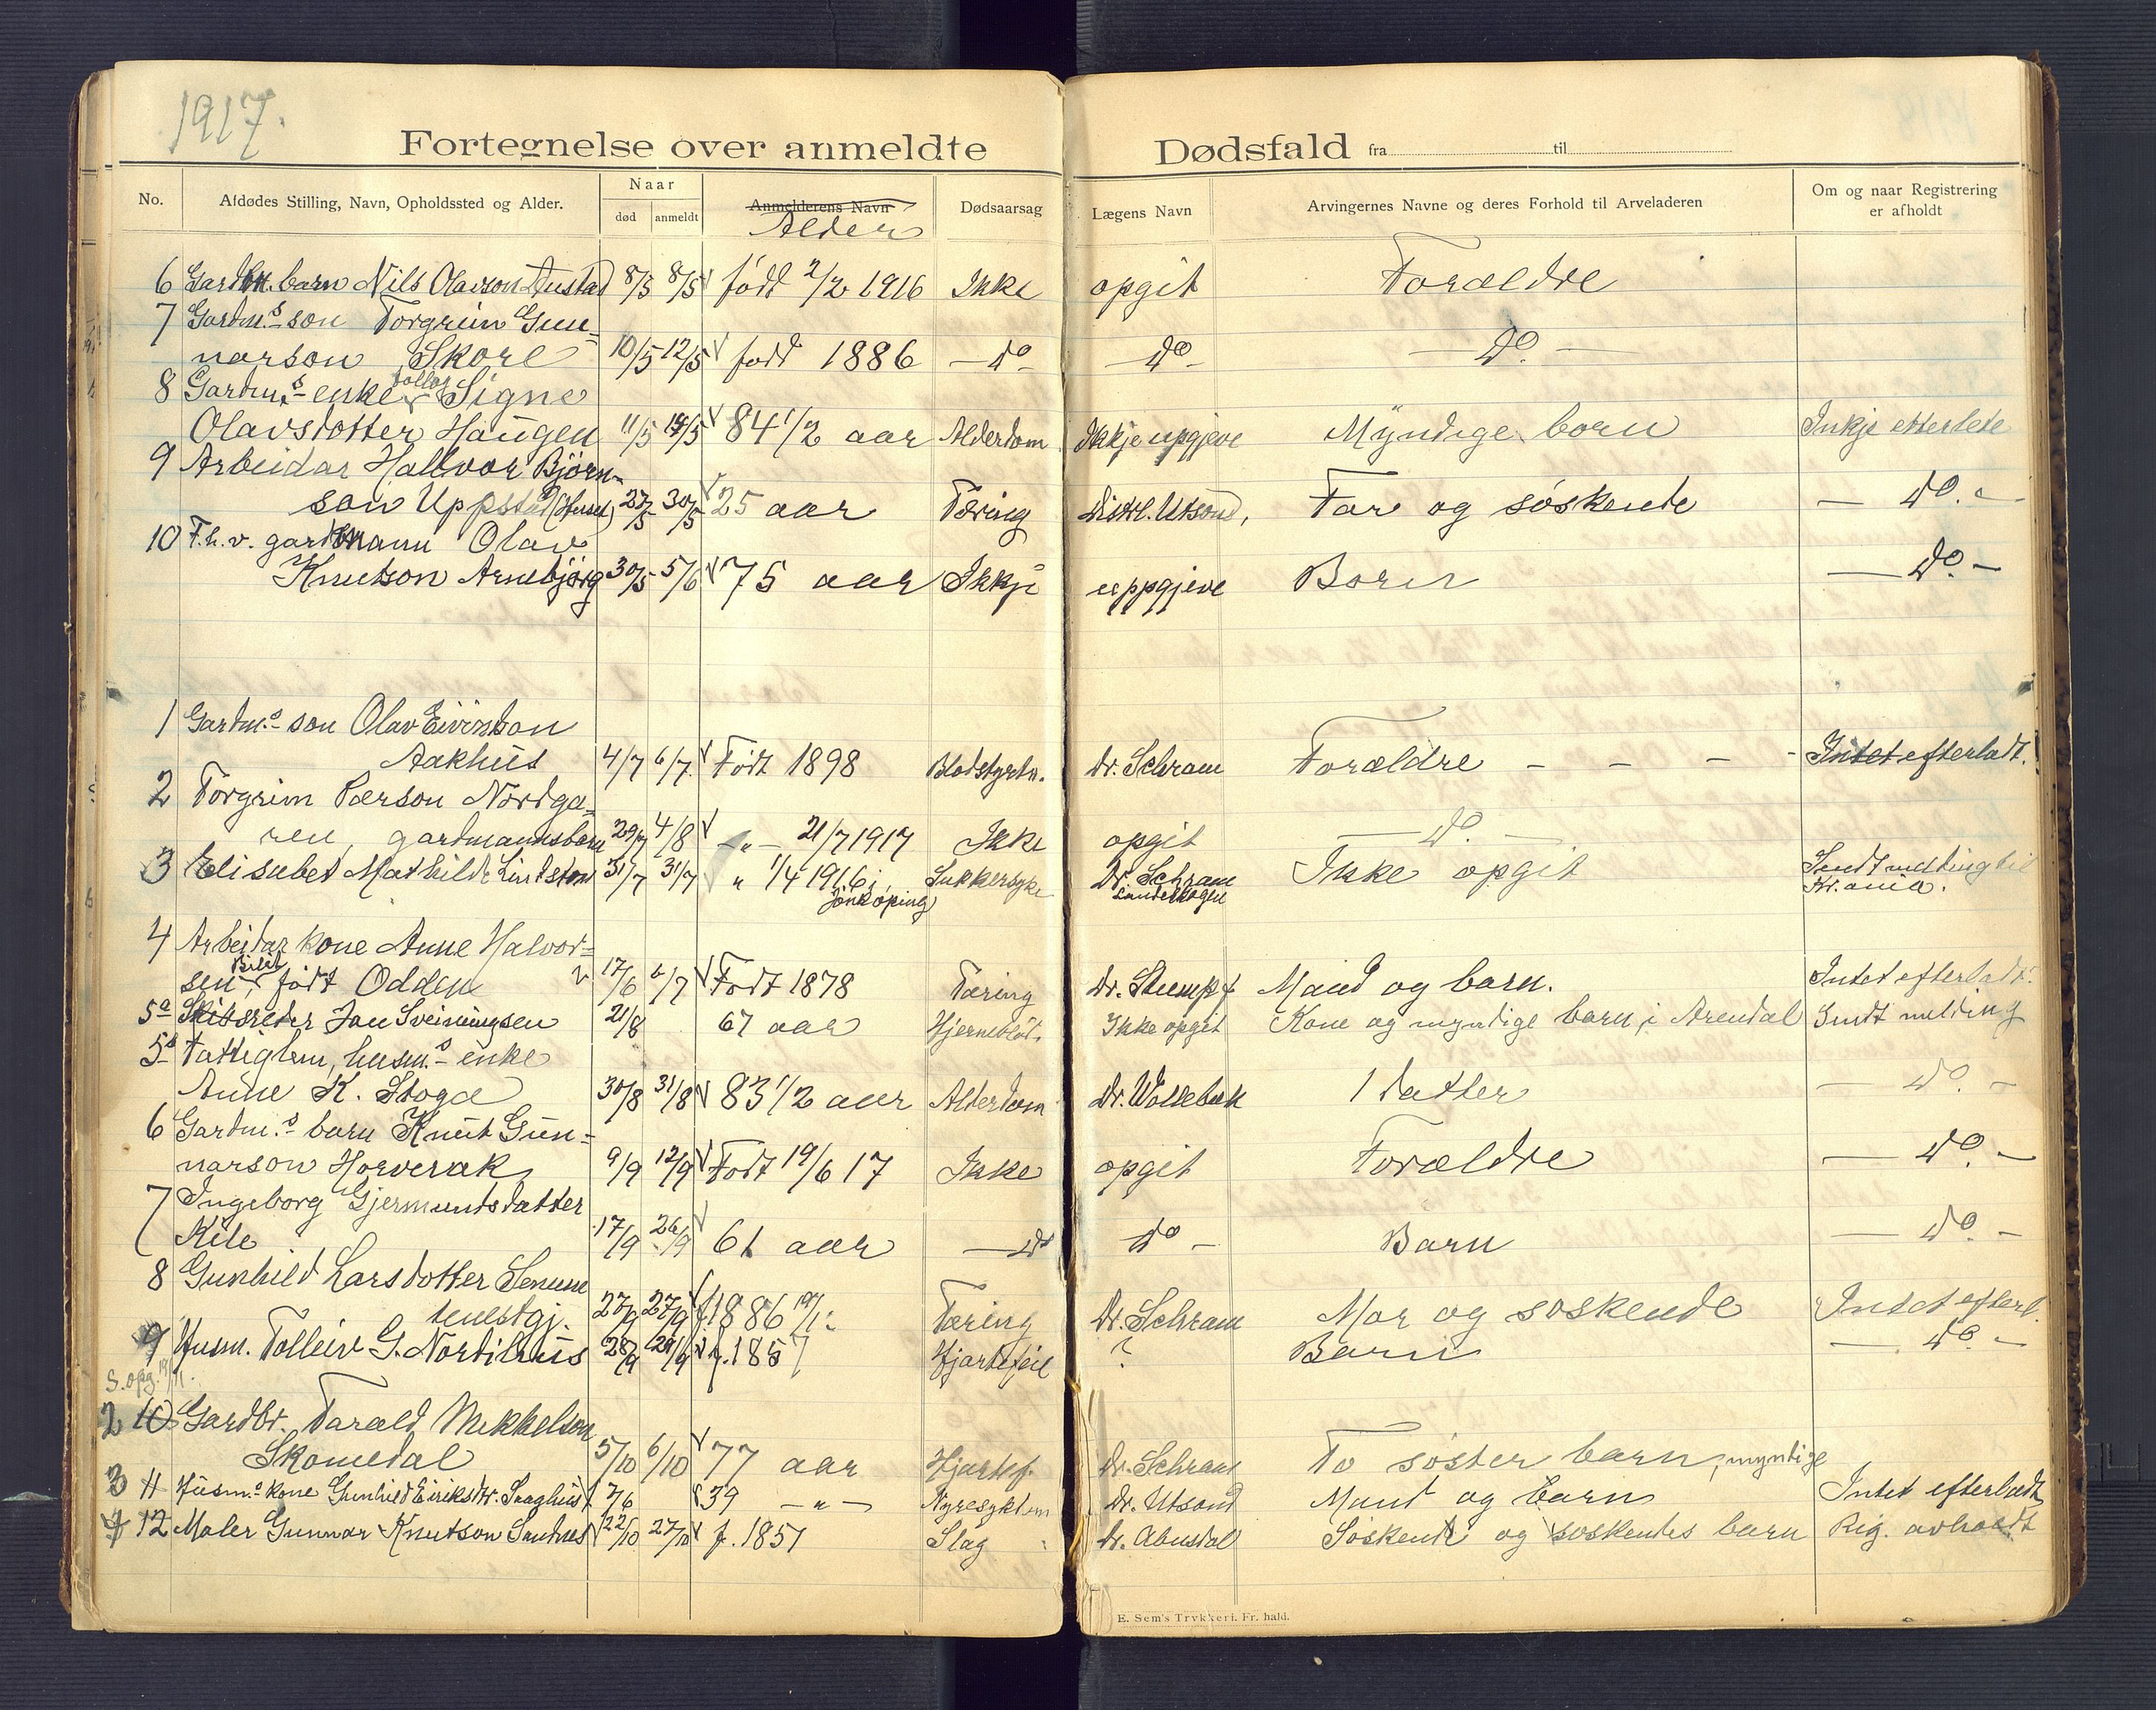 1917.
Fortegnelse over anmeldte Dødsfald fra til
No. Afdødes Stilling, Navn, Opholdssted og Alder. Naar død anmeldt Anmelderens Navn Alder Dødsaarsag Lægens Navn Arvingernes Navne og deres Forhold til Arveladeren Om og naar Registrering er afholdt
6 barn Nils Olavson 8/5 8/5 født 2/2 1916 Ikke opgit Forældre
7 Gardm.s son Torgrim Gun-
narson Skore 10/5 12/5 født 1886 — do — do — — do. —
8 Gardm.s enke Signe
Olavsdotter Haugen 11/5 84 1/2 aar Alderdom Ikkje upgjeve Myndige born Inkje etterlete
9 Arbeidar Hallvor Bjørn-
son Uppstad 27/5 30/5 25 aar Tæring Distrl. Utsond, Far og søskende — do. —
10 F.h.v. gardmann Olav
Knutson Arnebjørg 30/5 5/6 75 aar Ikkje uppgjeve Born — do. —
1 Gardm.s son Olav Eivindson
Aakhus 4/7 6/7 Født 1898 Blodstyrtn. Dr. Schram Forældre - - - - Intet efterladt.
2 Torgrim Pærson Nordga-
ren, gardmannsbarn 29/7 4/8 — " — 21/7 1917 Ikke opgit — do. —
3 Elisabet Mathilde 31/7 31/7 " 1/4 1916 i Jönköping Sukkersyke Dr. Schram Ikke opgit Sendt melding til Kr.ania.
4 Arbeidar kone Anne Halvor-
sen, født Odden 17/6 6/7 Født 1878 Tæring Dr. Stumpf Mand og barn. Intet efterladt.
5a Skibsreder Jan Sveinungsen 21/8 67 aar Hjerneblöd. Ikke opgit Kone og myndige barn, i Arendal Sendt melding
5b Fattiglem, husm.s enke
Anne K. Stoga 30/8 31/8 83 1/2 aar Alderdom Dr. Wollebæk 1 datter — do. —
6 Gardm.s barn Knut Gun-
narson Horverak 9/9 12/9 Født 19/6 17 Ikke opgit Forældre — do. —
7 Ingeborg Gjermundsdatter
Kile 17/9 26/9 61 aar — do do — Barn — do. —
8 Gunhild Larsdotter Senum
27/9 27/9 f. 1886 Tæring Dr. Schram Mor og søskende Intet efterl.
9 Husm. Tolleiv G. Nordihus 28/9 29/9 f. 1857 Hjartefeil ? Barn — do. —
S. opg. 19/11.
2 10 Gardbr. Tarald Mikkelson
Skomedal 5/10 6/10 77 aar Hjartef. Dr. Schram To søster barn, myndige
3 11 Husm.s kone Gunhild Eiriksdr. 7/6 39 — " — Nyresykdom Dr. Utsond Mand og barn Intet efterladt
4 12 Maler Gunnar Knutson 22/10 27/10 f. 1851 Slag Dr. Abusdal Søskende og søskendes barn Rig. avholdt
E. Sem's Trykkeri. Fr. hald.